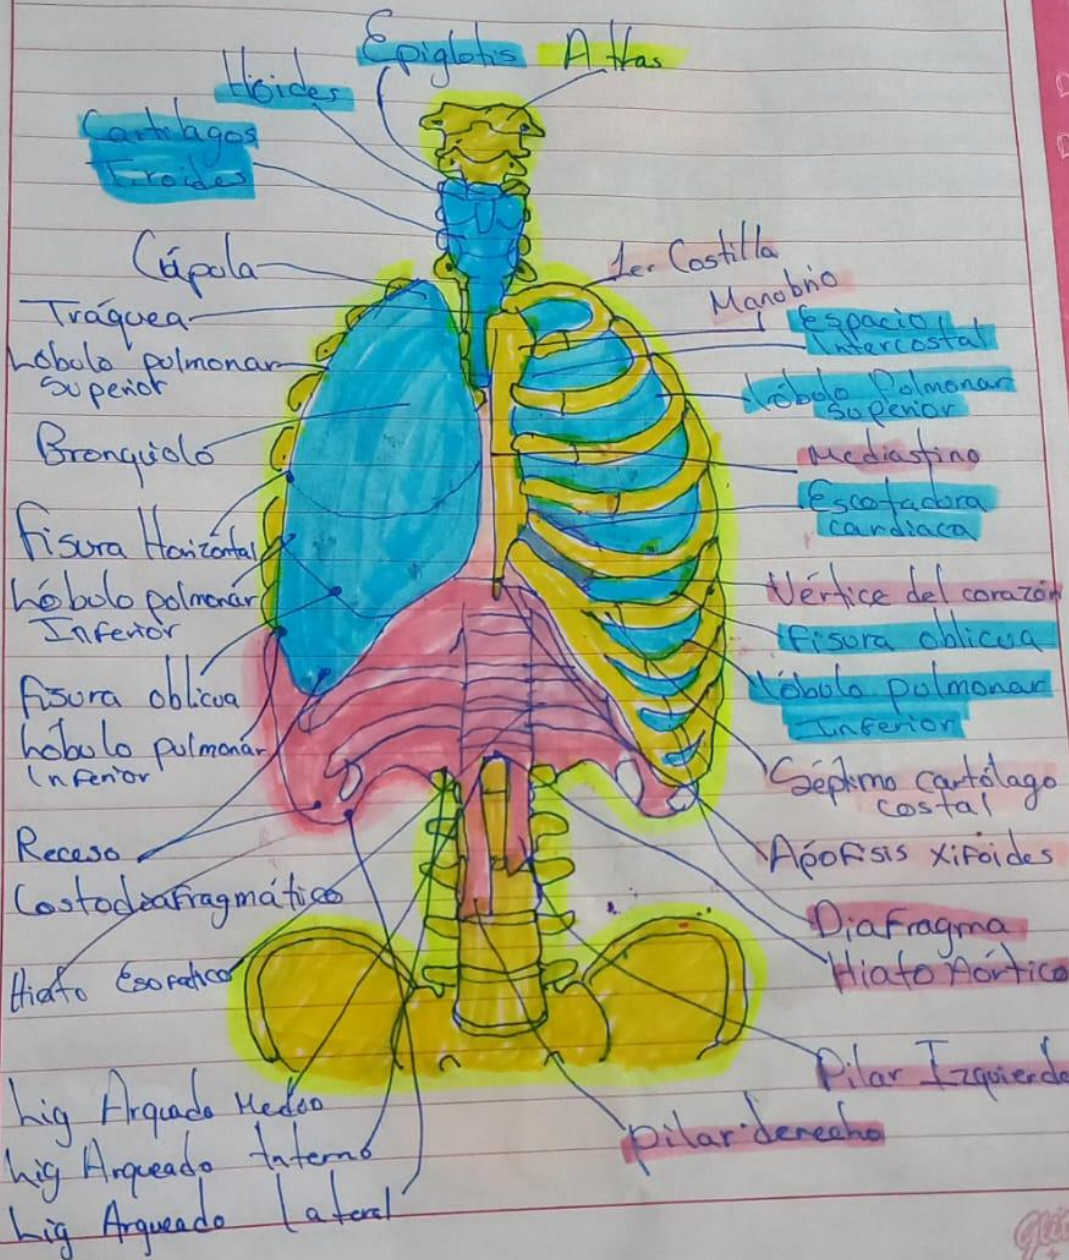 Epiglotis
Atlas
Hioides
Cartilagos
Tiroides
Cúpola
Tráquea
Lóbulo polmonar
Superior
Bronquiolo
Fisura Horizontal
Lóbolo polmonar
Inferior
Fisura oblicua
Lóbulo pulmonar
Inferior
Receso
Costodiafragmático
Hiato Esofatico
Lig Arquado Medio
Lig Arqueado Interno
Lig Arqueado Lateral
1er Costilla
Manobrio
Espacio
Intercostal
Lóbolo Polmonar
Superior
Mediastino
Escotadura
cardiaca
Vértice del corazón
Fisura oblicua
Lóbulo pulmonar
Inferior
Séptimo cartólago
costal
Apófisis xifoides
Diafragma
Hiato Aórtico
Pilar Izquierdo
pilar derecho